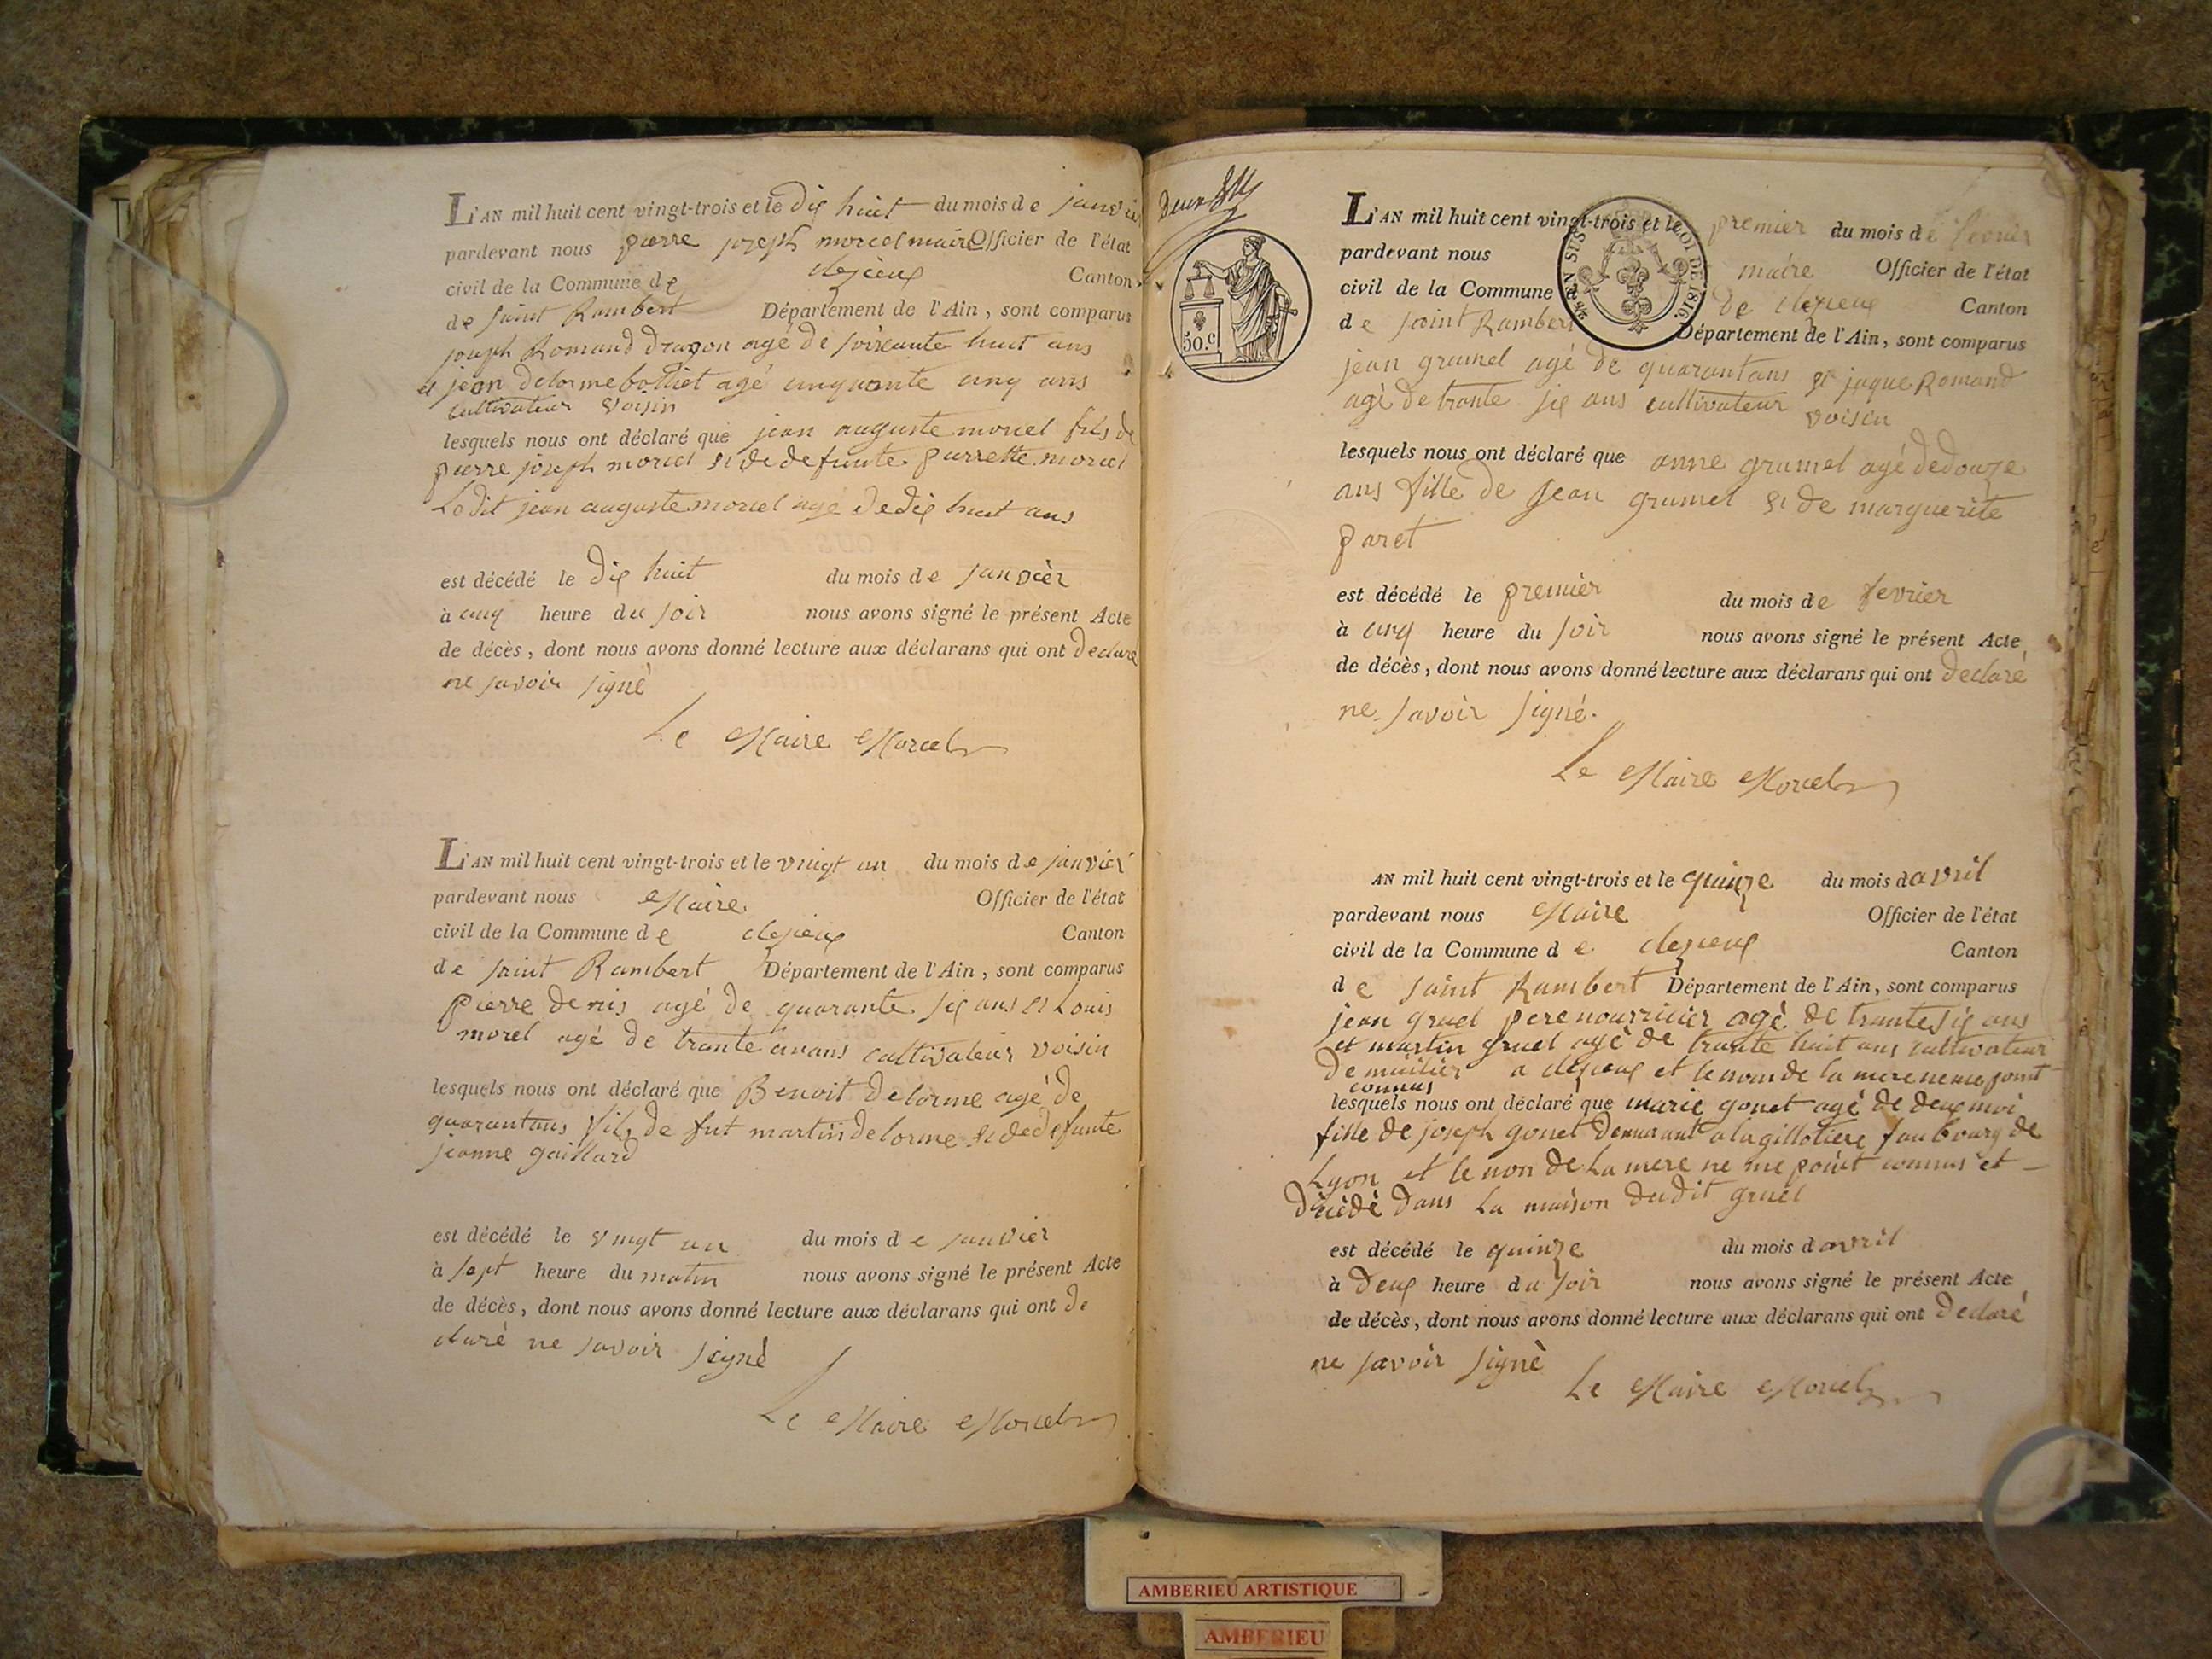 L'AN mil huit cent vingt-trois et le dix huit du mois de janvier
pardevant nous pierre joseph morcel maire Officier de l'état
civil de la Commune de clezieux Canton
de saint Rambert Département de l'Ain, sont comparus
joseph Romand dragon agé de soixante huit ans
et jean delorme bolliet agé cinquante cinq ans
cultivateur voisin
lesquels nous ont déclaré que jean auguste morcel fils de
pierre joseph morcel et de defunte pierrette morcel
Le dit jean auguste morcel agé de dix huit ans
est décédé le dix huit du mois de janvièr
à cinq heure du soir nous avons signé le présent Acte
de décès, dont nous avons donné lecture aux déclarans qui ont declaré
ne savoir signé
Le Maire Morcel
L'AN mil huit cent vingt-trois et le vingt un du mois de janvier
pardevant nous Maire Officier de l'état
civil de la Commune de clezieux Canton
de saint Rambert Département de l'Ain, sont comparus
pierre denis agé de quarante six ans et Louis
morel agé de trante un ans cultivateur voisin
lesquels nous ont déclaré que Benoit delorme agé de
quarantans fils de fut martin delorme et de defunte
jeanne gaillard
est décédé le vingt un du mois de janvier
à sept heure du matin nous avons signé le présent Acte
de décès, dont nous avons donné lecture aux déclarans qui ont de
claré ne savoir signé
Le Maire Morcel
Deux
L'AN mil huit cent vingt-trois et le premier du mois de fevrier
pardevant nous maire Officier de l'état
civil de la Commune de clezieux Canton
de saint Rambert Département de l'Ain, sont comparus
50.c
LOI DE 1816.
jean grumel agé de quarantans et jaque Romand
agé de trante six ans cultivateur voisin
lesquels nous ont déclaré que anne grumel agé de douze
ans fille de jean grumel et de marguerite
paret
est décédé le premier du mois de fevrier
à cinq heure du soir nous avons signé le présent Acte
de décès, dont nous avons donné lecture aux déclarans qui ont declaré
ne savoir signé.
Le Maire Morcel
AN mil huit cent vingt-trois et le quinze du mois davril
pardevant nous Maire Officier de l'état
civil de la Commune de clezieux Canton
de saint Rambert Département de l'Ain, sont comparus
jean gruel pere nourricier agé de trante six ans
et martin gruel agé de trante huit ans cultivateur
a clezieux et le nom de la mere ne me point
connus
lesquels nous ont déclaré que marie gonet agé de deux moi
fille de joseph gonet demurant a la gillotiere faubourg de
Lyon et le non de La mere ne me point connus et
décédé dans La maison dudit gruel
est décédé le quinze du mois davril
à deux heure du soir nous avons signé le présent Acte
de décès, dont nous avons donné lecture aux déclarans qui ont declaré
ne savoir signé
Le Maire Morcel
AMBERIEU ARTISTIQUE
AMBERIEU